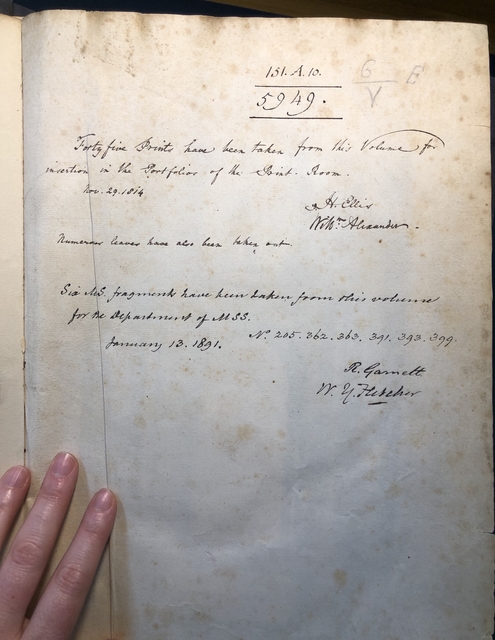 151. A. 10.
5949.
G E
V
Forty five Prints have been taken from this Volume for
insertion in the Portfolios of the Print Room.
Nov. 29. 1814
H. Ellis
Wm. Alexander.
Numerous leaves have also been taken out.
Six MS. fragments have been taken from this volume
for the Department of MSS.
No. 205. 362. 363. 391. 393. 399.
January 13. 1891.
R. Garnett
W. Y. Fletcher